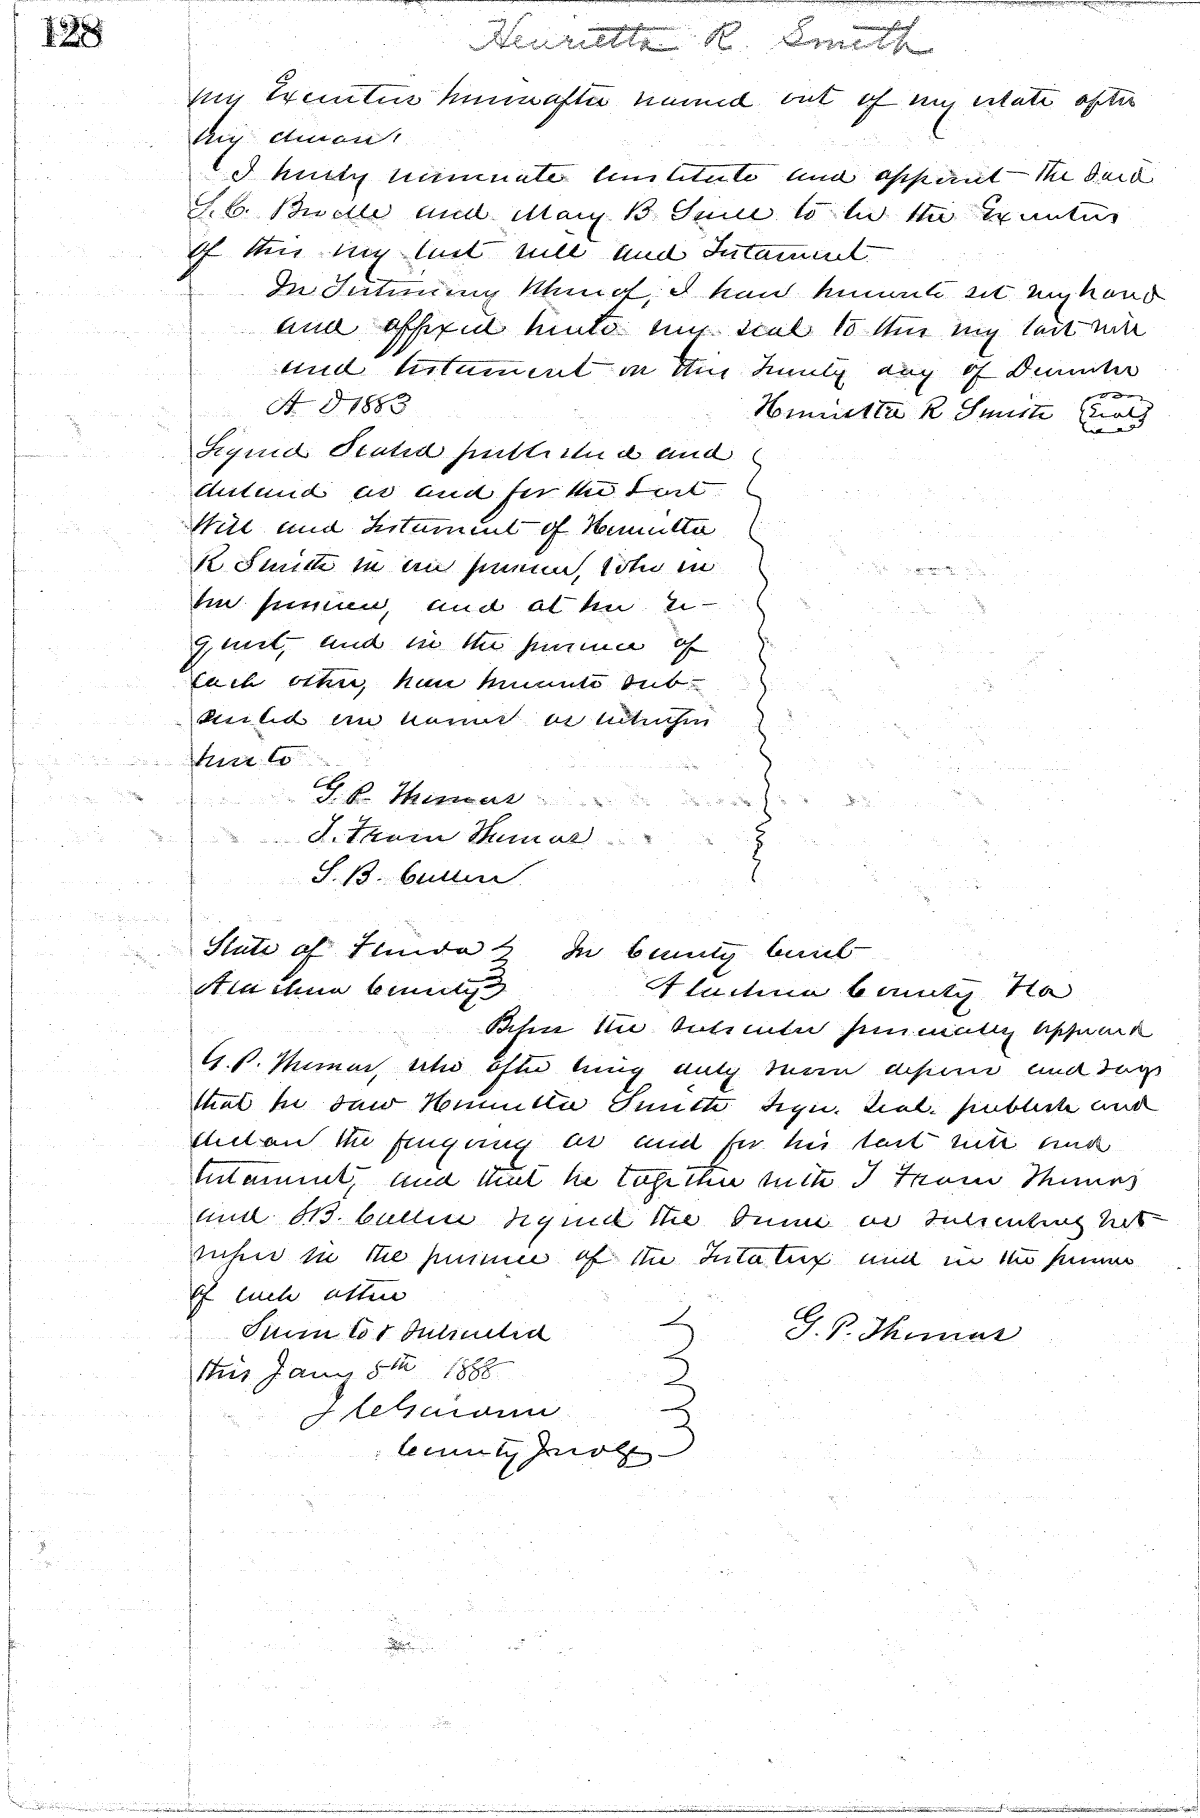 128
Henrietta R. Smith
my Executors hereinafter named out of my estate after
my demise.
I hereby nominate constitute and appoint the said
S. C. and Mary B. to be the Executors
of this my last will and Testament
In Testimony Whereof, I have hereunto set my hand
and affixed hereto my seal to this my last will
and testament on this day of December
A D 1883
Henrietta R Smith (Seal)
Signed Sealed published and
declared as and for the Last
Will and Testament of Henrietta
R Smith in our presence, who in
her presence, and at her re-
quest, and in the presence of
each other, have hereunto sub-
scribed our names as witnesses
hereto
G. P. Thomas
J. Thomas
S. B.
State of Florida In County Court
Alachua County Alachua County Fla
Before the subscriber personally appeared
G. P. Thomas, who after being duly sworn deposes and says
that he saw Henrietta Smith sign. seal. publish and
declare the foregoing as and for his last will and
testament, and that he together with J Thomas
and S.B. signed the same as subscribing wit-
nesses in the presence of the Testatrix and in the presence
of each other
Sworn to & subscribed
G. P. Thomas
this Jany 5th 1888
County Judge